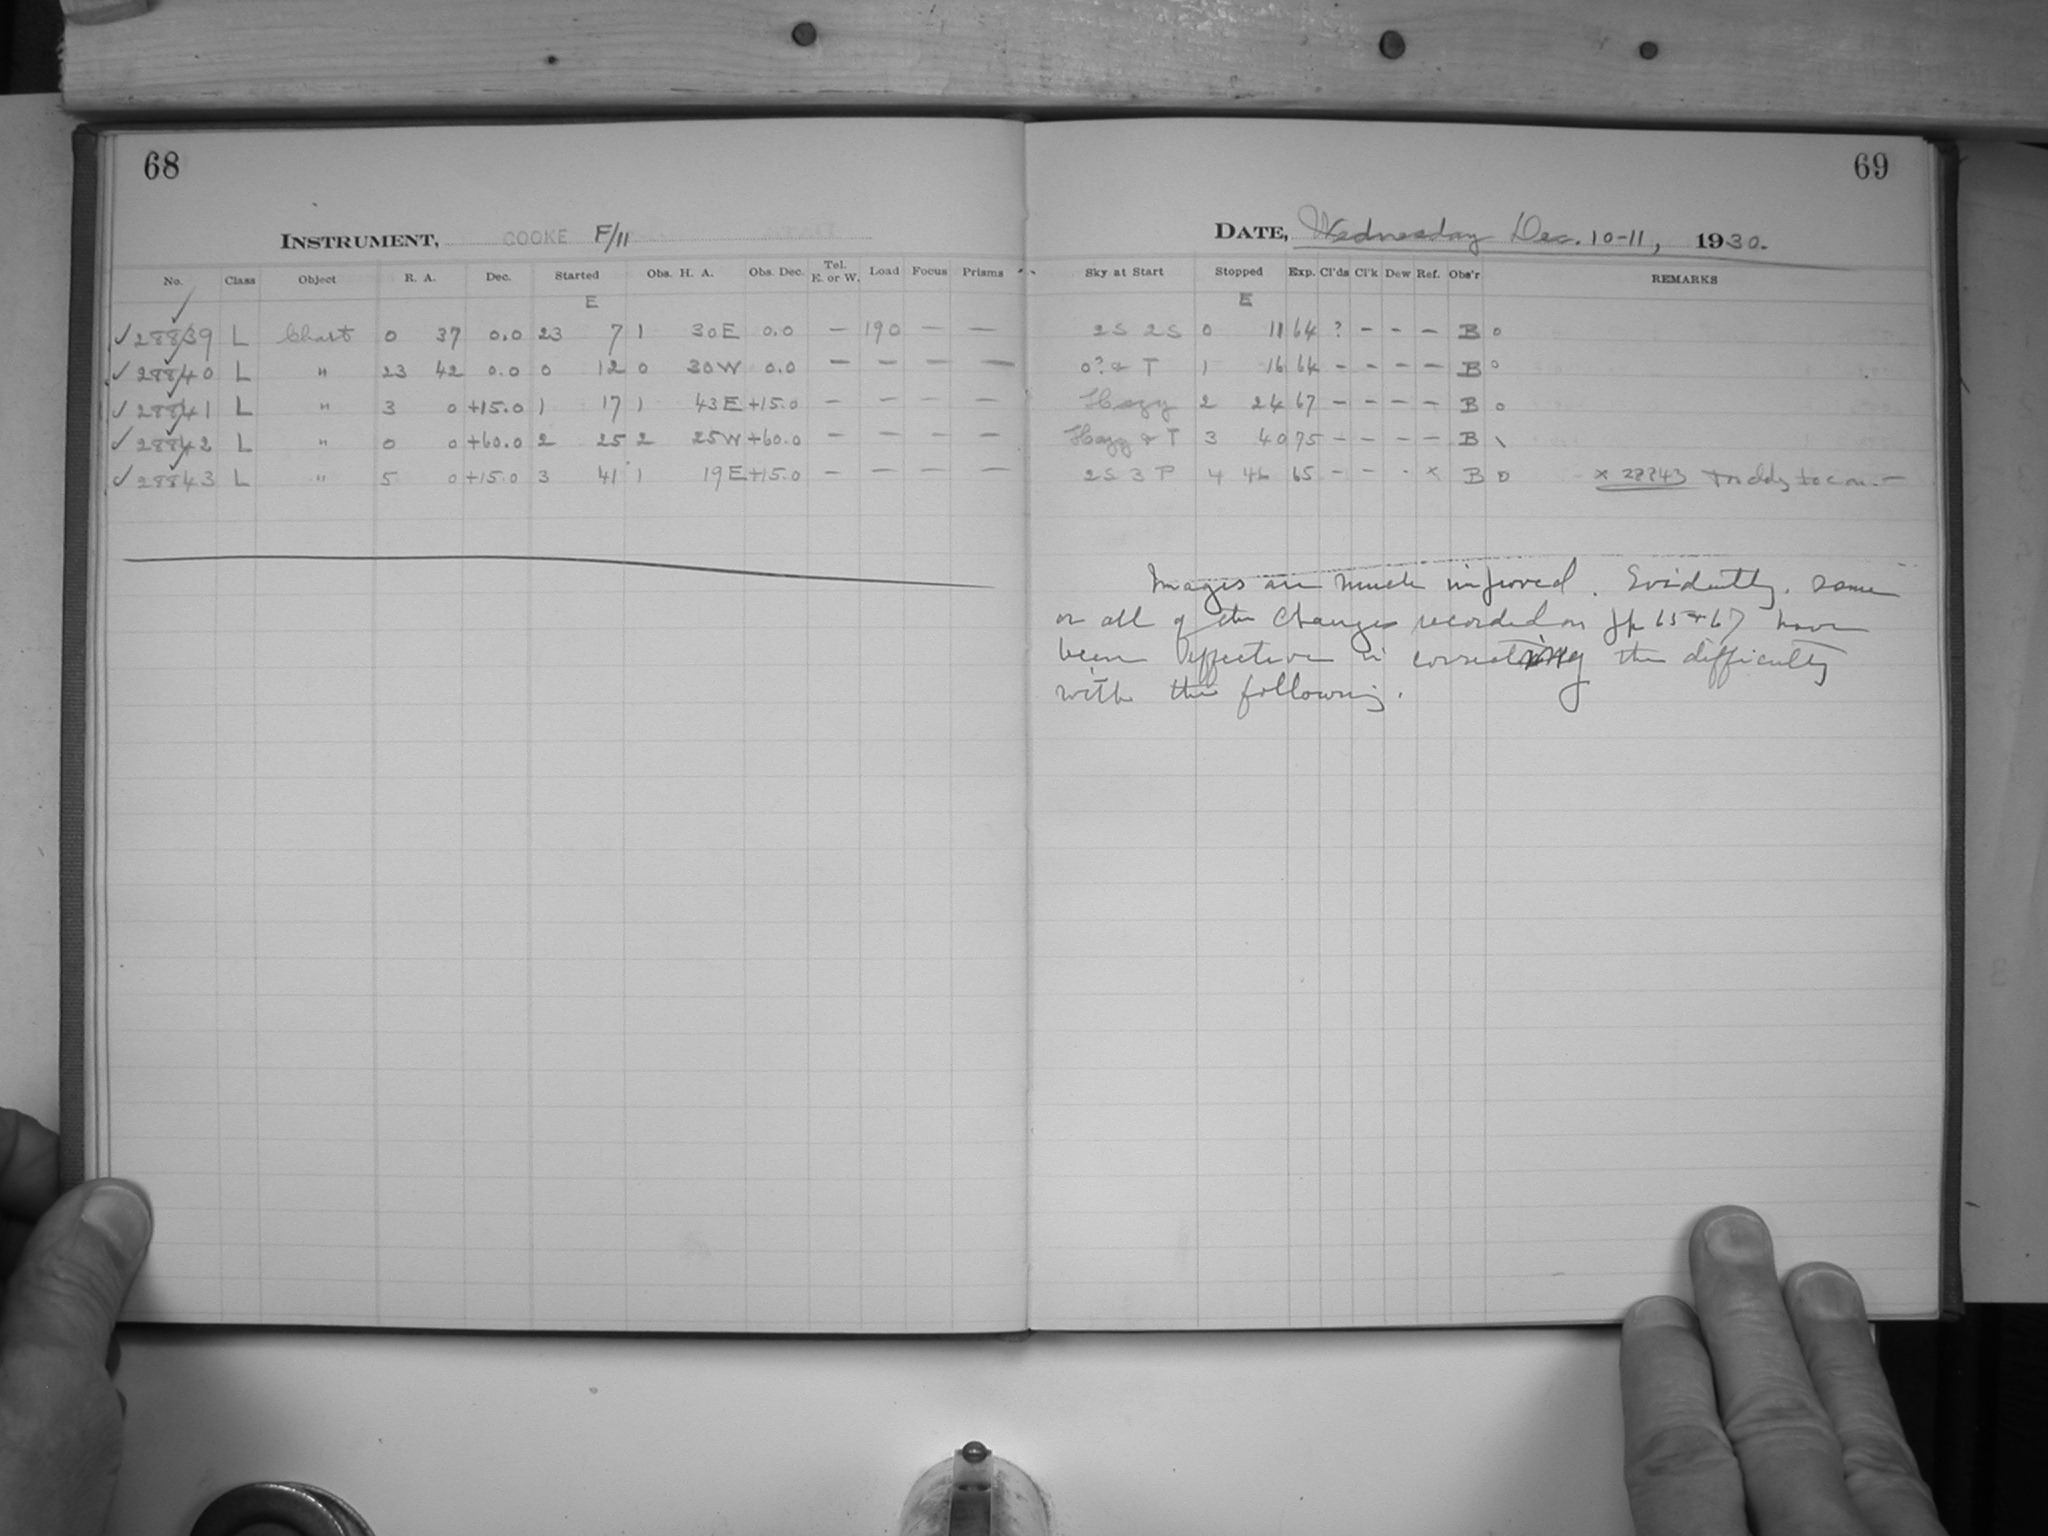 68
69
INSTRUMENT, COOKE F/11
DATE, Wednesday Dec. 10-11, 1930.
No. Class Object R. A. Dec. Started Obs. H. A. Obs. Dec. Tel. E. or W. Load Focus Prisms Sky at Start Stopped Exp. Cl'ds Cl'k Dew Ref. Obs'r REMARKS
E E
✓ 28839 L Chart 0 37 0.0 23 7 1 30E 0.0 — 190 — — 2S 2S 0 11 64 ? - - - B 0
✓ 28840 L " 23 42 0.0 0 12 0 30W 0.0 — — — — 0? & T 1 16 64 - - - - B 0
✓ 28841 L " 3 0 +15.0 1 17 1 43E +15.0 — — — — Hazy 2 24 67 - - - - B 0
✓ 28842 L " 0 0 +60.0 2 25 2 25W +60.0 — — — — Hazy & T 3 40 75 - - - - B \
✓ 28843 L " 5 0 +15.0 3 41 1 19E +15.0 — — — — 2S 3 P 4 46 65 - - - x B 0 x 28843
Images are much improved. Evidently some
or all of the changes recorded on pp 65 + 67 have
been effective in correcting the difficulty
with the following.